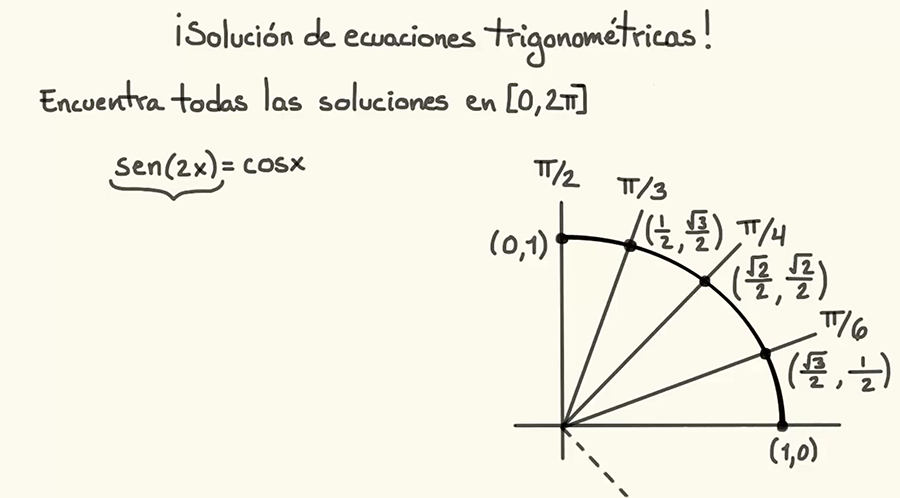 ¡Solución de ecuaciones trigonométricas!
Encuentra todas las soluciones en [0,2π]
sen(2x)=cosx
π/2
π/3
(0,1)
(1/2, √3/2)
π/4
(√2/2, √2/2)
π/6
(√3/2, 1/2)
(1,0)